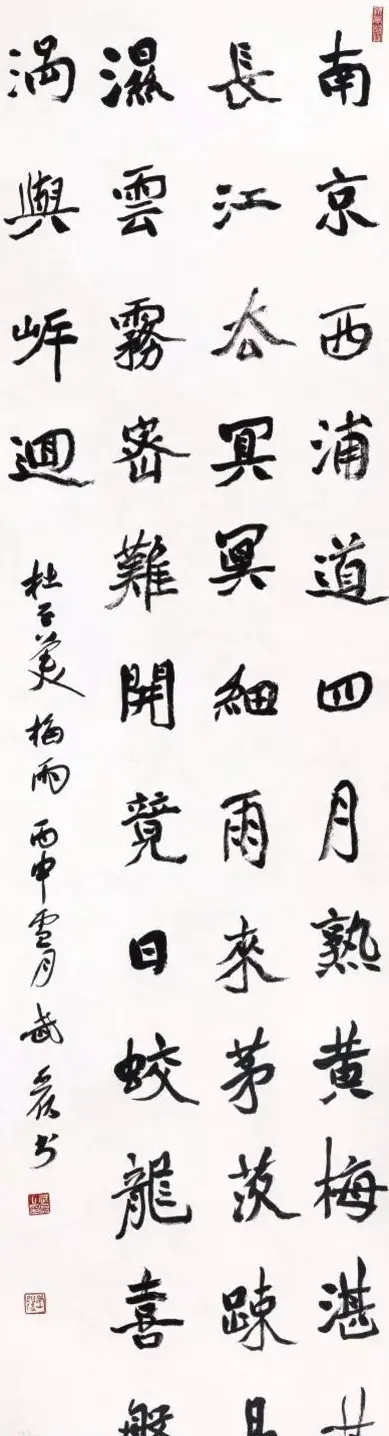 南京西浦道四月熟黄梅湛
長江去冥冥細雨來茅茨疎
濕雲霧密難開竟日蛟龍喜
渦與岸迴
杜子美梅雨 丙申雪月 武